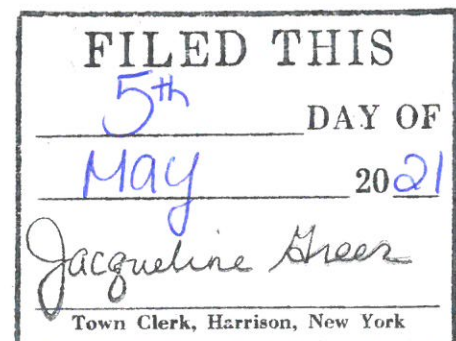 FILED THIS
5th DAY OF
May 2021
Jacqueline Greer
Town Clerk, Harrison, New York